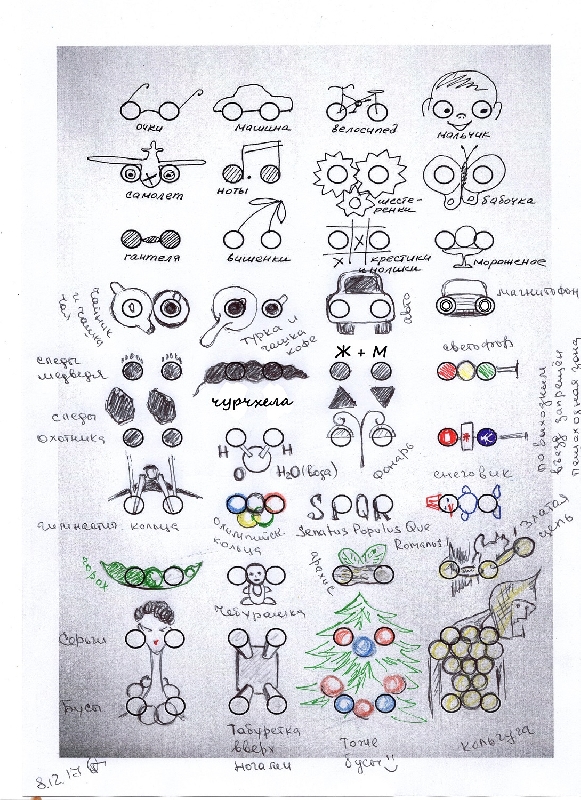 очки
машина
велосипед
мальчик
самолет
ноты
шесте-
ренки
бабочка
гантеля
вишенки
X
X
крестики
и нолики
мороженое
чайник
и чашка
чая
турка и
чашка
кофе
авто
магнитофон
следы
медведя
чурчхела
Ж + М
светофор
следы
охотника
H
H
O
H2O (вода)
фонарь
по выходным
въезд запрещен
пешеходная зона
снеговик
кольца
олимпийск.
кольца
SPQR
Senatus Populus Que
Romanus
Златая
цепь
горох
Чебурашка
арахис
Серьги
Бусы
Табуретка
вверх
ногами
Тоже
бусы
Кольчуга
8.12.17